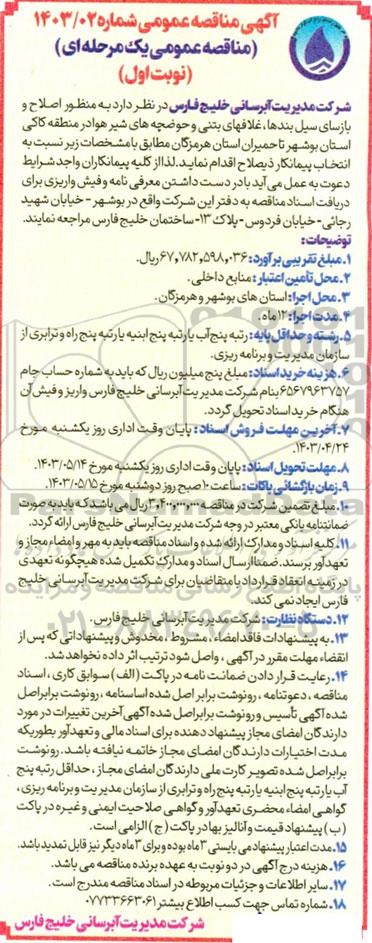 آگهی مناقصه عمومی شماره ۱۴۰۳/۰۲
(مناقصه عمومی یک مرحله ای)
(نوبت اول)
شرکت مدیریت آبرسانی خلیج فارس در نظر دارد به منظور اصلاح و
بازسای سیل بندها، غلافهای بتنی و حوضچه های شیر هوا در منطقه کاکی
استان بوشهر تا حمیران استان هرمزگان مطابق با مشخصات زیر نسبت به
انتخاب پیمانکار ذیصلاح اقدام نماید. لذا از کلیه پیمانکاران واجد شرایط
دعوت به عمل می آید با در دست داشتن معرفی نامه و فیش واریزی برای
دریافت اسناد مناقصه به دفتر این شرکت واقع در بوشهر - خیابان شهید
رجائی - خیابان فردوس - پلاک ۱۳- ساختمان خلیج فارس مراجعه نمایند.
توضیحات:
۱. مبلغ تقریبی برآورد: ۶۷,۷۸۲,۵۹۸,۰۳۶ ریال.
۲. محل تأمین اعتبار: منابع داخلی.
۳. محل اجرا: استان های بوشهر و هرمزگان.
۴. مدت اجرا: ۱۲ ماه.
۵. رشته و حداقل پایه: رتبه پنج آب یا رتبه پنج ابنیه یا رتبه پنج راه و ترابری از
سازمان مدیریت و برنامه ریزی.
۶. هزینه خرید اسناد: مبلغ پنج میلیون ریال که باید به شماره حساب جام
۶۵۶۷۹۶۳۷۵۷ بنام شرکت مدیریت آبرسانی خلیج فارس واریز و فیش آن
هنگام خرید اسناد تحویل گردد.
۷. آخرین مهلت فروش اسناد: پایان وقت اداری روز یکشنبه مورخ
۱۴۰۳/۰۴/۲۴.
۸. مهلت تحویل اسناد: پایان وقت اداری روز یکشنبه مورخ ۱۴۰۳/۰۵/۱۴.
۹. زمان بازگشائی پاکات: ساعت ۱۰ صبح روز دوشنبه مورخ ۱۴۰۳/۰۵/۱۵.
۱۰. مبلغ تضمین شرکت در مناقصه ۳,۴۰۰,۰۰۰,۰۰۰ ریال می باشد که باید به صورت
ضمانتنامه بانکی معتبر در وجه شرکت مدیریت آبرسانی خلیج فارس ارائه گردد.
۱۱. کلیه اسناد و مدارک ارائه شده و اسناد مناقصه باید به مهر و امضاء مجاز و
تعهدآور برسند. ضمناً ارسال اسناد و مدارک تکمیل شده هیچگونه تعهدی
در زمینه انعقاد قرارداد با متقاضیان برای شرکت مدیریت آبرسانی خلیج
فارس ایجاد نمی کند.
۱۲. دستگاه نظارت: شرکت مدیریت آبرسانی خلیج فارس.
۱۳. به پیشنهادات فاقد امضاء، مشروط، مخدوش و پیشنهاداتی که پس از
انقضاء مهلت مقرر در آگهی، واصل شود ترتیب اثر داده نخواهد شد.
۱۴. رعایت قرار دادن ضمانت نامه در پاکت (الف) سوابق کاری، اسناد
مناقصه، دعوتنامه، رونوشت برابر اصل شده اساسنامه، رونوشت برابر اصل
شده آگهی تأسیس و رونوشت برابر اصل شده آگهی آخرین تغییرات در مورد
دارندگان امضای مجاز پیشنهاد دهنده برای اسناد مالی و تعهدآور بطوریکه
مدت اختیارات دارندگان امضای مجاز خاتمه نیافته باشد. رونوشت
برابر اصل شده تصویر کارت ملی دارندگان امضای مجاز، حداقل رتبه پنج
آب یا رتبه پنج ابنیه یا رتبه پنج راه و ترابری از سازمان مدیریت و برنامه ریزی،
گواهی امضاء محضری تعهدآور و گواهی صلاحیت ایمنی و غیره در پاکت
(ب) پیشنهاد قیمت و آنالیز بهادر پاکت (ج) الزامی است.
۱۵. مدت اعتبار پیشنهاد می بایستی ۳ ماه بوده و برای ۳ ماه دیگر نیز قابل تمدید باشد.
۱۶. هزینه درج آگهی در دو نوبت به عهده برنده مناقصه می باشد.
۱۷. سایر اطلاعات و جزئیات مربوطه در اسناد مناقصه مندرج است.
۱۸. شماره تماس جهت کسب اطلاع بیشتر ۰۷۷۳۳۶۶۳۰۶۱
شرکت مدیریت آبرسانی خلیج فارس